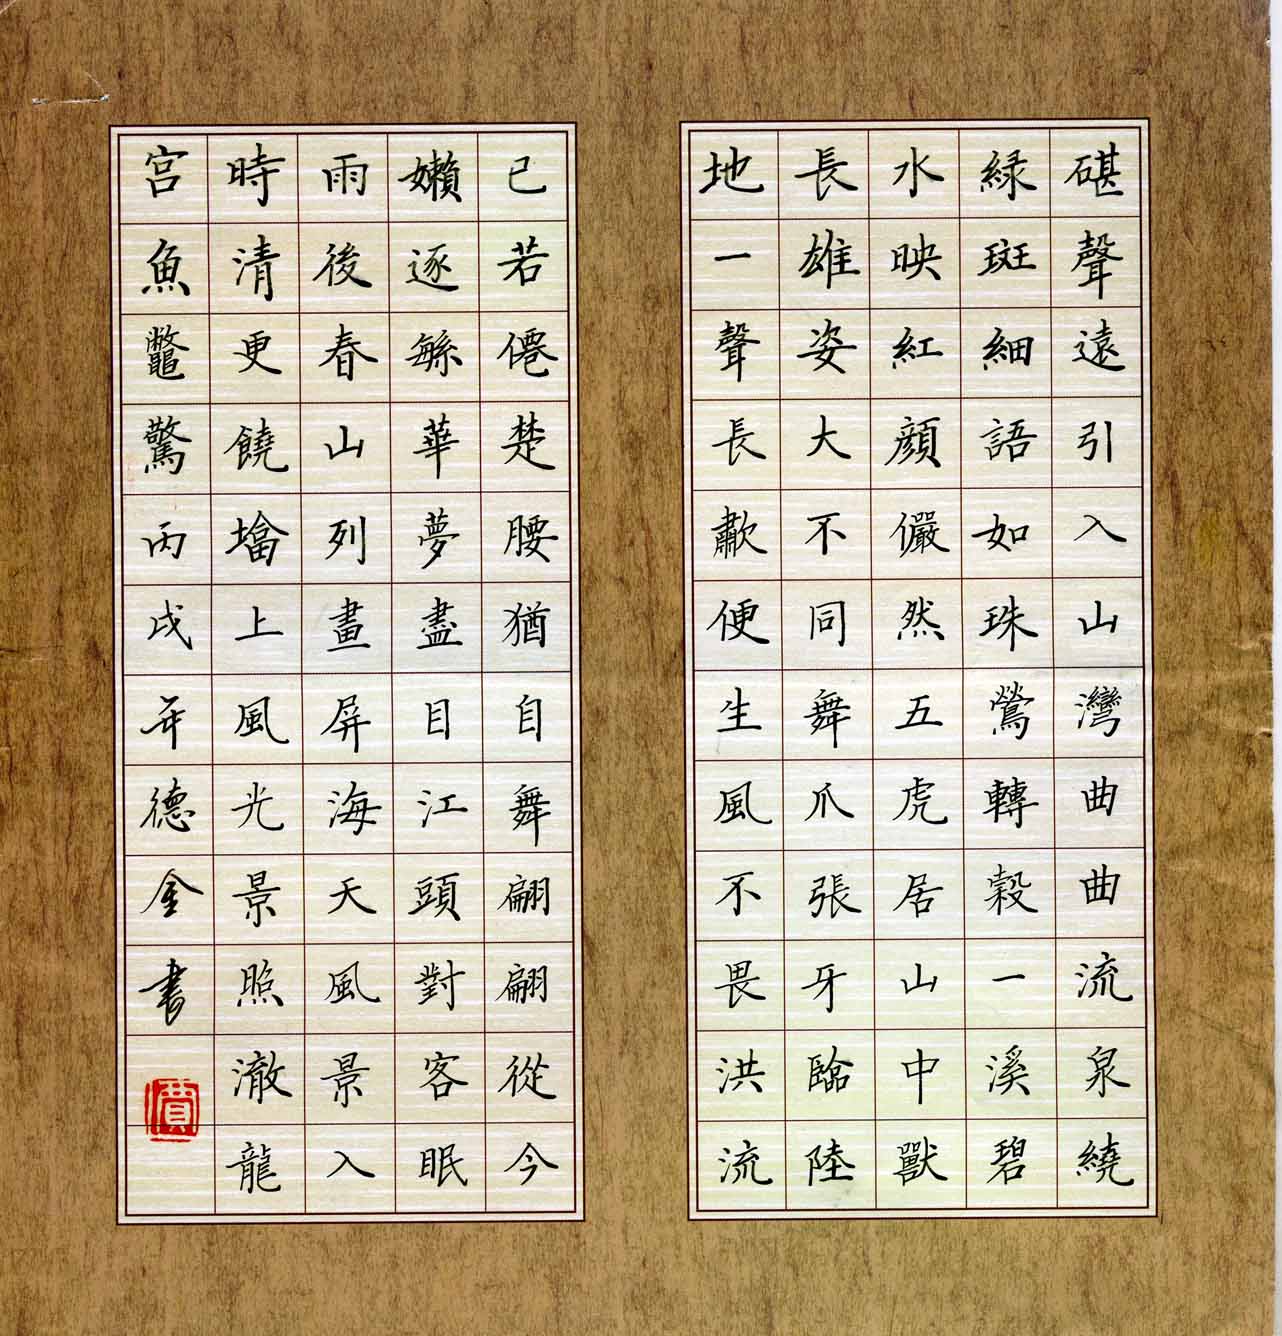 碪聲遠引入山灣曲曲流泉繞
緑斑細語如珠鶯轉穀一溪碧
水映紅顔儼然五虎居山中獸
長雄姿大不同舞爪張牙臨陸
地一聲長歗便生風不畏洪流
已若僊楚腰猶自舞翩翩從今
嬾逐緐華夢盡目江頭對客眠
雨後春山列畫屏海天風景入
時清更饒墖上風光景照澈龍
宮魚鼈驚丙戌年德金書